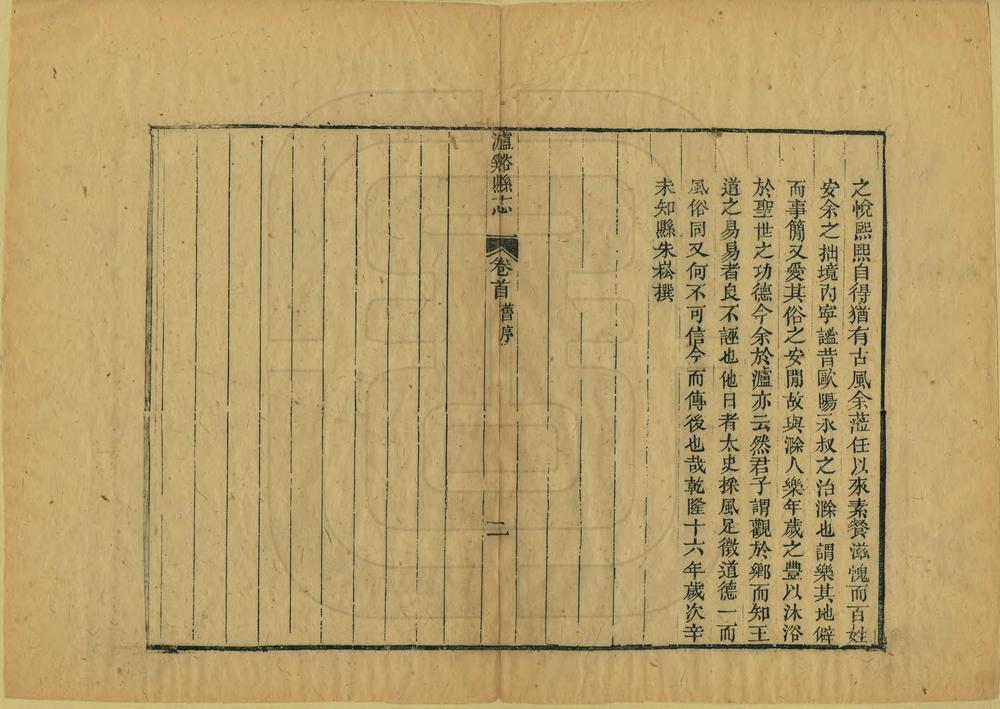 之悅熙熙自得猶有古風余蒞任以來素餐滋愧而百姓
安余之拙境內寧謐昔歐陽永叔之治滁也謂樂其地僻
而事簡又愛其俗之安閒故與滁人樂年歲之豐以沐浴
於聖世之功德今余於瀘亦云然君子謂觀於鄉而知王
道之易易者良不誣也他日者太史採風足徵道德一而
風俗同又何不可信今而傳後也哉乾隆十六年歲次辛
未知縣朱崧撰
瀘谿縣志
卷首
舊序
二